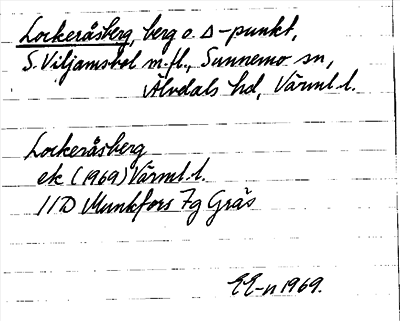 Lockeråsberg, berg o. Δ-punkt,
S. Viljamsbol m.fl., Sunnemo sn,
Älvdals hd, Värml.l.
Lockeråsberg
ek (1969) Värml.l.
11D Munkfors 7g Gräs
EE-n 1969.